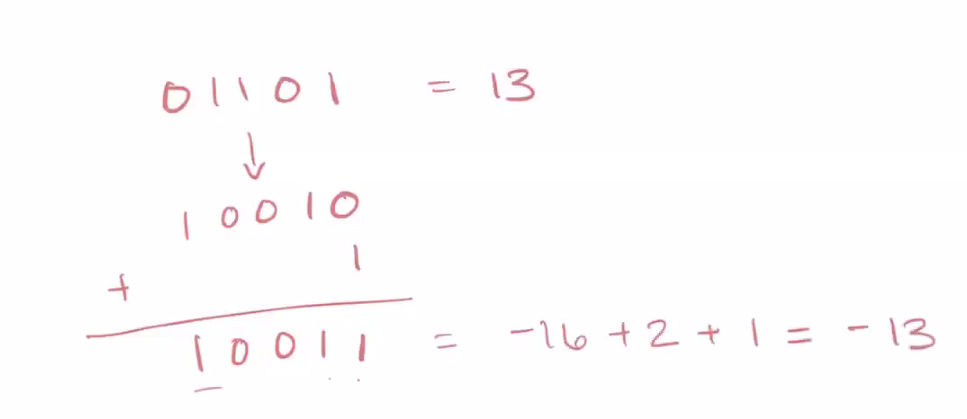 01101 = 13
↓
10010
+ 1
10011 = -16 + 2 + 1 = -13